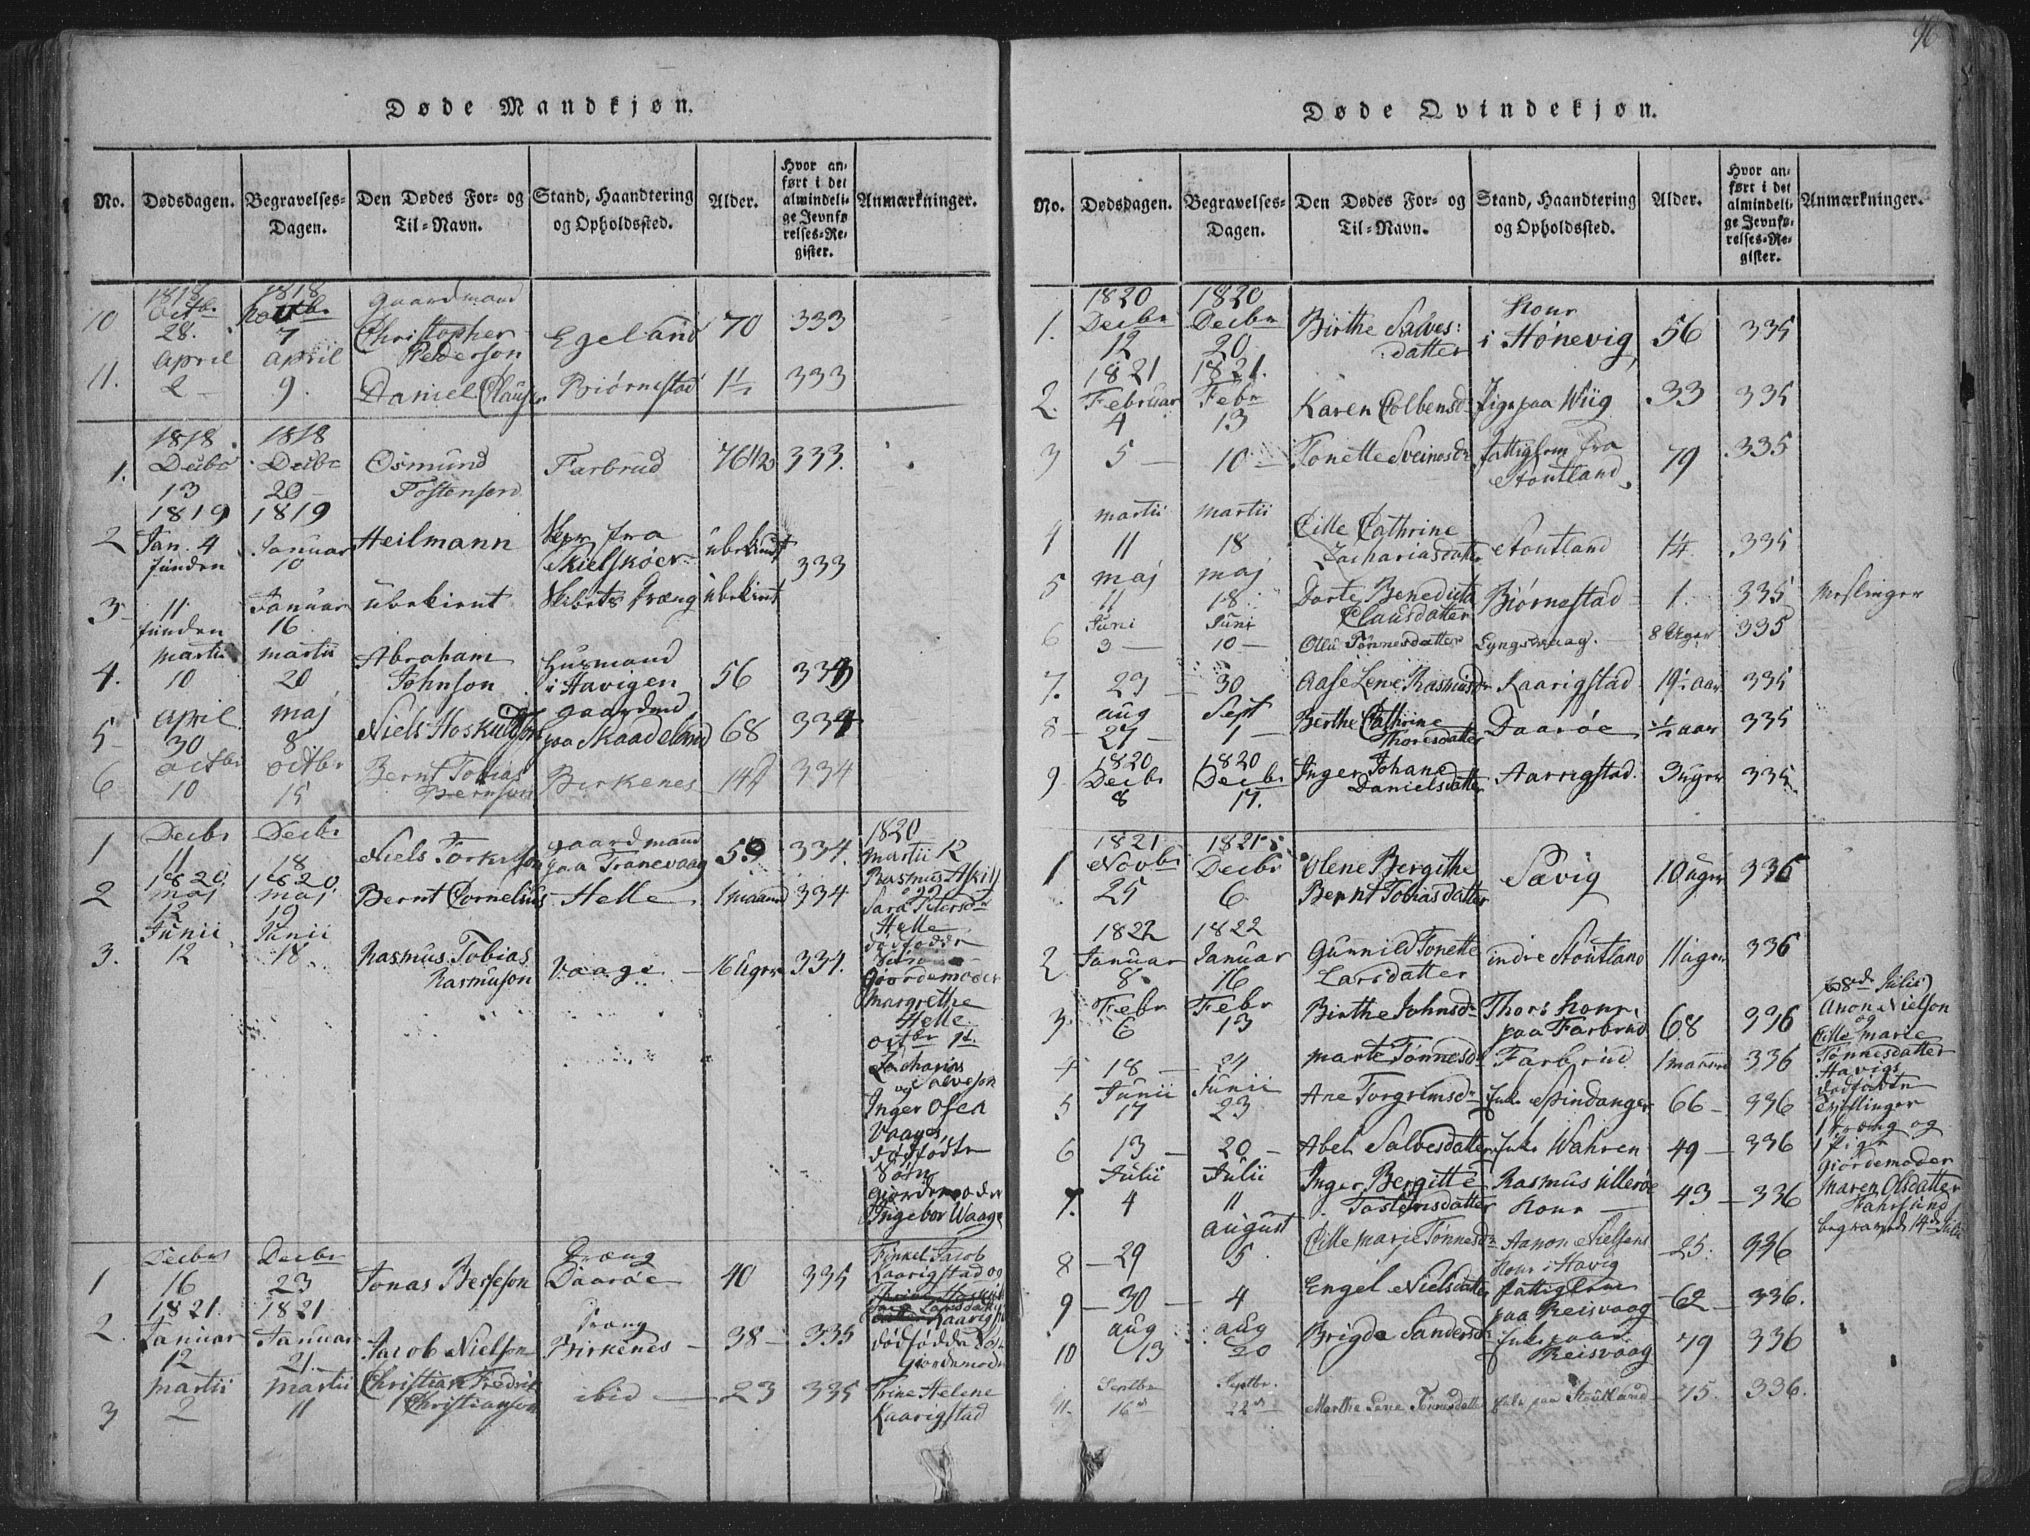 96
Døde Mandkjøn.
No. Dødsdagen. Begravelses-Dagen. Den Dødes For- og Til-Navn. Stand, Haandtering og Opholdssted. Alder. Hvor anført i det almindelige Jevnførelses-Register. Anmærkninger.
1818 1818 Gaardmand
10 Octbr 28. Novbr 7 Christopher Pederson Egeland 70 333
11. April 2 April 9. Daniel Clausen Biørnestad 333
1818 1818
1. Decbr 13 Decbr 20 Osmund Tostensen Farbrud 76 1/2 333.
1819 1819
2 Jan. 4 funden Januar 10 Heilmann fra Skielskøer ubekient 333
3 11 funden Januar 16. ubekient Skibets Dræng ubekient
4. Martii 10 Martii 20 Abraham Johnson Husmand i Havigen 56 334
5 April 30 Maj 8 Niels Gaardmd paa Skaadeland 68 334
6 Octbr 10 Octbr 15 Bernt Tobias Bernson Birkenes 334
1 Decbr 11 Decbr 18 Niels Gaardmand paa Tranevaag 334.
1820 1820
2 Maj 12 Maj 19 Bernt Cornelius Helle 1 maaned 334
3. Junii 12 Junii 18 Rasmus Tobias Rasmuson Vaage 16 Uger 334.
1820
Martii 12
Rasmus
og
Sara Petersdr
Helle
dødfødde
Giordemoder
Margrethe
Helle
Octbr 1st.
Zacharias
og Salveson
Inger Olsen
Vaages
dødfødte
Søn
Giordemoder
Ingebor Waage
1 Decbr 16 Decbr 23 Jonas Dræng Daarøe 40 335
1821. 1821
2. Januar 12 Januar 21. Jacob Nielson Dræng Birkenes 38 335
3 Martii 2 Martii 11 Christian Fredrik Christianson ibid 23 335
Jacob
Kaarigstad og
Kaarigstad
dødfødde Søn
Giordemoder
Trine Helene
Kaarigstad
Døde Qvindekjøn.
No. Dødsdagen. Begravelses-Dagen. Den Dødes For- og Til-Navn. Stand, Haandtering og Opholdssted. Alder. Hvor anført i det almindelige Jevnførelses-Register. Anmærkninger.
1820 1820
1. Decbr 12 Decbr 20 Birthe Salves:datter Kone i Hønevig 56 335
1821 1821.
2. Februar 4 Febr 13 Karen Colbensdr Pige paa Wiig 33 335
3 5 10 Tonette Sveinesdr fattiglem fra Stoutland 79 335
4 Martii 11 Martii 18 Cille Cathrine Zachariasdatter Stoutland 335
5 Maj 11 Maj 18 Dorte Benedicta Clausdatter Biørnestad 1. 335 Meslinger
6 Juni 3 Juni 10 Tønnesdatter Lyngsvaag. 8 Uger 335
7. 23 30 Aase Lene Rasmusdr Kaarigstad 335
8 Aug 27 Sept 1 Birthe Cathrine Thoresdatter Daarøe 1/2 aar 335
1820 1820
9. Decbr 8 Decbr 17. Inger Johane Danielsdatter Aarrigstad. 3 uger 335
1821 1821
1 Novbr 25 Decbr 6 Olene Bergithe Bernt Tobiasdatter Sævig 10 uger 336
1822 1822
2 Januar 8 Januar 16 Gunnild Tonette Larsdatter indre Stoutland 11 uger 336
3. Febr 6 Febr 13 Birthe Johnsdr Thors Kone, paa Farbrud 68 336
4 18 24 Marte Tønnesdr Farbrud 1 maaned 336
5 Junii 17 Junii 23 Ane Torgrimsdr Enke Spindanger 66 336
6 13 20 Abel Salvesdatter Enke Wahren 49 336
7. Julii 4 Julii 11 Inger Bergitte Tostensdatter Rasmus Ullerøe Kone 43 336
8 29 August 5 Cille Marie Tønnesdr Aanon Nielsens Kone i Havig 25. 336
9 30 4 Engel Nielsdatter fattiglem paa Reisvaag 62 336.
10 Aug 13 Aug 20 Brigde Sandersdr Enke paa Reisvaag 79 336
11. Septbr 16d Septbr. 22d Marthe Lene Tønnesdatter paa Stoutland 75. 336.
8de Julii
Anon Nielson
og
Cille Marie
Tønnesdatter
Havigs
dødfødte
Tvillinger
1 Dræng og
1 Pige
Giordemoder
Maren Olsdatter
Fahrsund
begraved 14d Julii